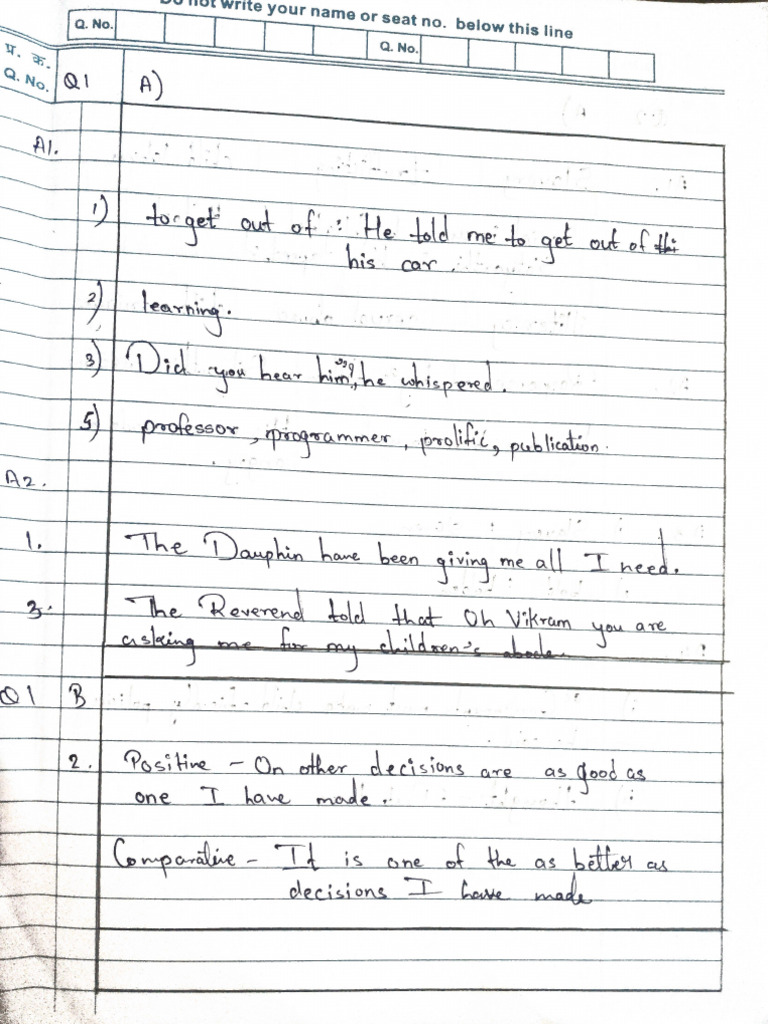 Do not write your name or seat no. below this line
Q. No.
Q. No.
प्र. क्र.
Q. No.
Q1 A)
A1.
1) to get out of : He told me to get out of thi
his car.
2) learning.
3) Did you hear him?", he whispered.
5) professor, programmer, prolific, publication.
A2.
1. The Dauphin have been giving me all I need.
3. The Reverend told that Oh Vikram you are
asking me for my children's abode.
Q1 B
2. Positive - On other decisions are as good as
one I have made.
Comparative - It is one of the as better as
decisions I have made